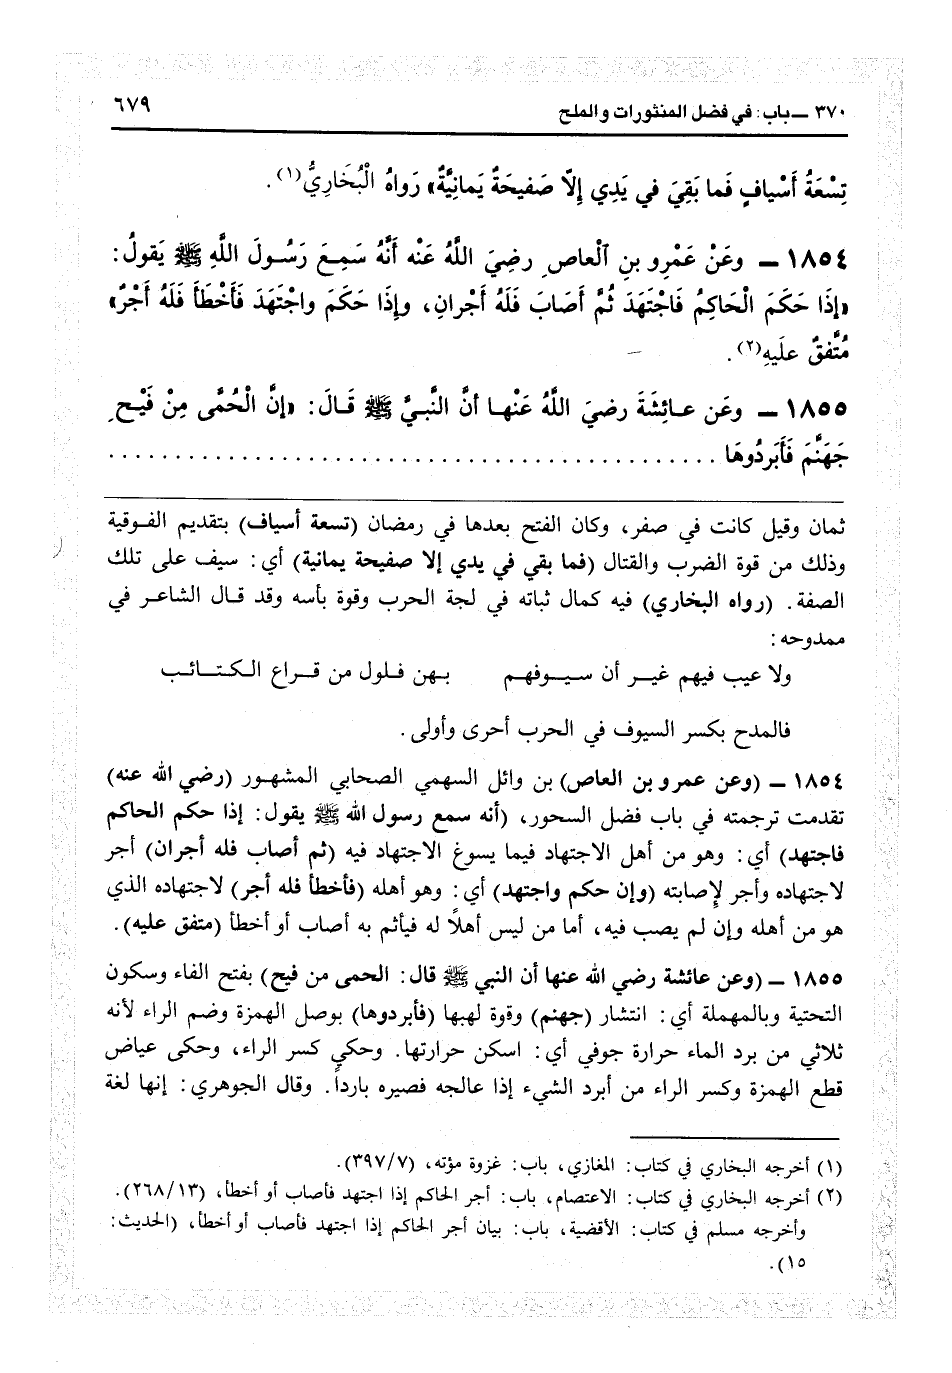 ٣٧٠ ــ باب: في فضل المنثورات والملح
٦٧٩
تِسْعَةُ أَسْيافٍ فَما بَقِيَ في يَدِي إِلاّ صَفيحَةٌ يَمانِيَّةٌ» رَواهُ الْبُخَارِيُّ(١).
١٨٥٤ ــ وعَنْ عَمْرِو بنِ الْعاصِ رضِيَ اللَّهُ عَنْه أَنَّهُ سَمِعَ رَسُولَ اللَّهِ ﷺ يَقولُ:
«إِذَا حَكَمَ الْحَاكِمُ فَاجْتَهَدَ ثُمَّ أَصَابَ فَلَهُ أَجْرانِ، وإِذَا حَكَمَ واجْتَهَدَ فَأَخْطَأَ فَلَهُ أَجْرٌ»
مُتَّفقٌ علَيهِ(٢).
١٨٥٥ ــ وعَن عـائِشَةَ رضيَ اللَّهُ عَنْهـا أنَّ النَّبـيَّ ﷺ قَـالَ: «إنَّ الْحُمَّى مِنْ فَيْـحِ
جَهَنَّمَ فَأَبْرِدُوهَا ..............................................
ثمان وقيل كانت في صفر، وكان الفتح بعدها في رمضان (تسعة أسياف) بتقديم الفـوقية
وذلك من قوة الضرب والقتال (فما بقي في يدي إلا صفيحة يمانية) أي: سيف على تلك
الصفة. (رواه البخاري) فيه كمال ثباته في لجة الحرب وقوة بأسه وقد قـال الشاعـر في
ممدوحه:
ولا عيب فيهم غيـر أن سيـوفهـم بـهن فـلول من قـراع الـكـتـائـب
فالمدح بكسر السيوف في الحرب أحرى وأولى.
١٨٥٤ ــ (وعن عمرو بن العاص) بن وائل السهمي الصحابي المشهـور (رضي الله عنه)
تقدمت ترجمته في باب فضل السحور، (أنه سمع رسول الله ﷺ يقول: إذا حكم الحاكم
فاجتهد) أي: وهو من أهل الاجتهاد فيما يسوغ الاجتهاد فيه (ثم أصاب فله أجران) أجر
لاجتهاده وأجر لإصابته (وإن حكم واجتهد) أي: وهو أهله (فأخطأ فله أجر) لاجتهاده الذي
هو من أهله وإن لم يصب فيه، أما من ليس أهلاً له فيأثم به أصاب أو أخطأ (متفق عليه).
١٨٥٥ ــ (وعن عائشة رضي الله عنها أن النبي ﷺ قال: الحمى من فيح) بفتح الفاء وسكون
التحتية وبالمهملة أي: انتشار (جهنم) وقوة لهبها (فأبردوها) بوصل الهمزة وضم الراء لأنه
ثلاثي من برد الماء حرارة جوفي أي: اسكن حرارتها. وحكي كسر الراء، وحكى عياض
قطع الهمزة وكسر الراء من أبرد الشيء إذا عالجه فصيره بارداً. وقال الجوهري: إنها لغة
(١) أخرجه البخاري في كتاب: المغازي، باب: غزوة مؤته، (٣٩٧/٧).
(٢) أخرجه البخاري في كتاب: الاعتصام، باب: أجر الحاكم إذا اجتهد فأصاب أو أخطأ، (٢٦٨/١٣).
وأخرجه مسلم في كتاب: الأقضية، باب: بيان أجر الحاكم إذا اجتهد فأصاب أو أخطأ، (الحديث:
١٥).